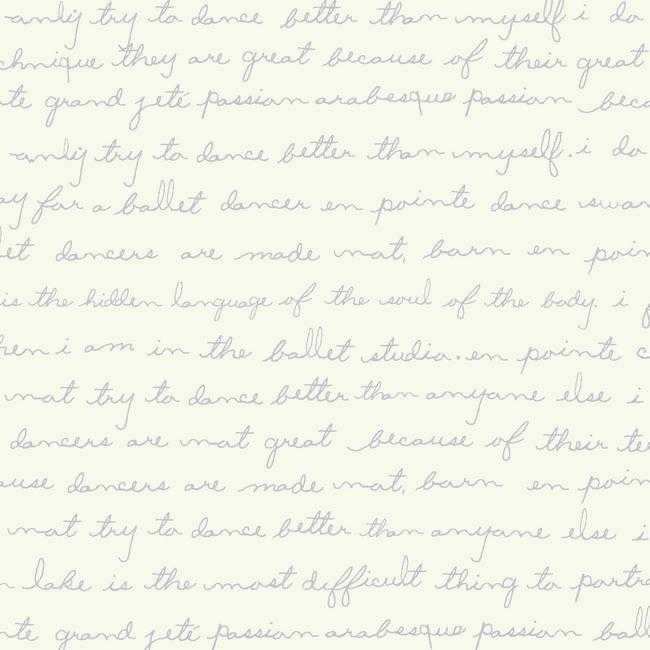 only try to dance better than myself i do
chnique they are great because of their great
te grand jeté passion arabesque passion beca
only try to dance better than myself. i do
ay for a ballet dancer en pointe dance swan
let dancers are made not, born en poin
is the hidden language of the soul of the body. i
hen i am in the ballet studio. en pointe
not try to dance better than anyone else i
dancers are not great because of their te
ause dancers are made not, born en poin
not try to dance better than anyone else i
n lake is the most difficult thing to portra
nte grand jeté passion arabesque passion ball